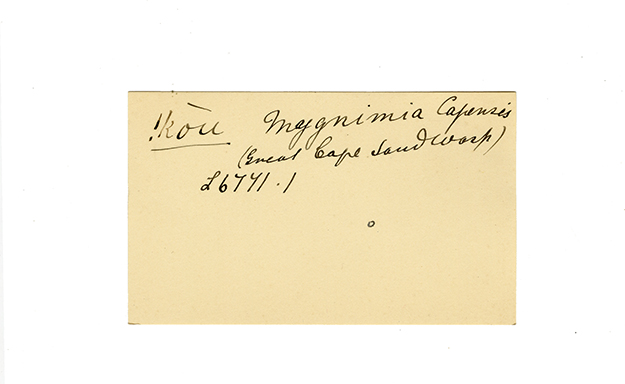 !kòu Mygnimia Capensis
(Great Cape Sand Wasp)
L6771.1